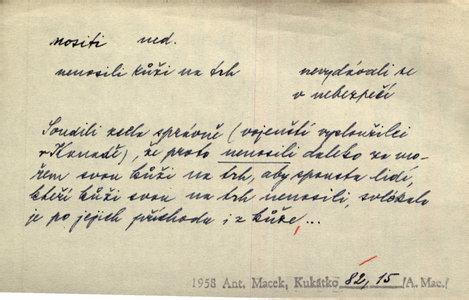 nositi ned.
nenosili kůži na trh nevydávali se
v nebezpečí
Soudili zcela správně (vojenští vysloužilci
v Kanadě), že proto nenosili daleko za mo-
řem svou kůži na trh, aby spousta lidí,
kteří kůži svou na trh nenosili, svlékala
je po jejich příchodu i z kůže, ...
1958 Ant. Macek, Kukátko 82, 15 /A. Mac./